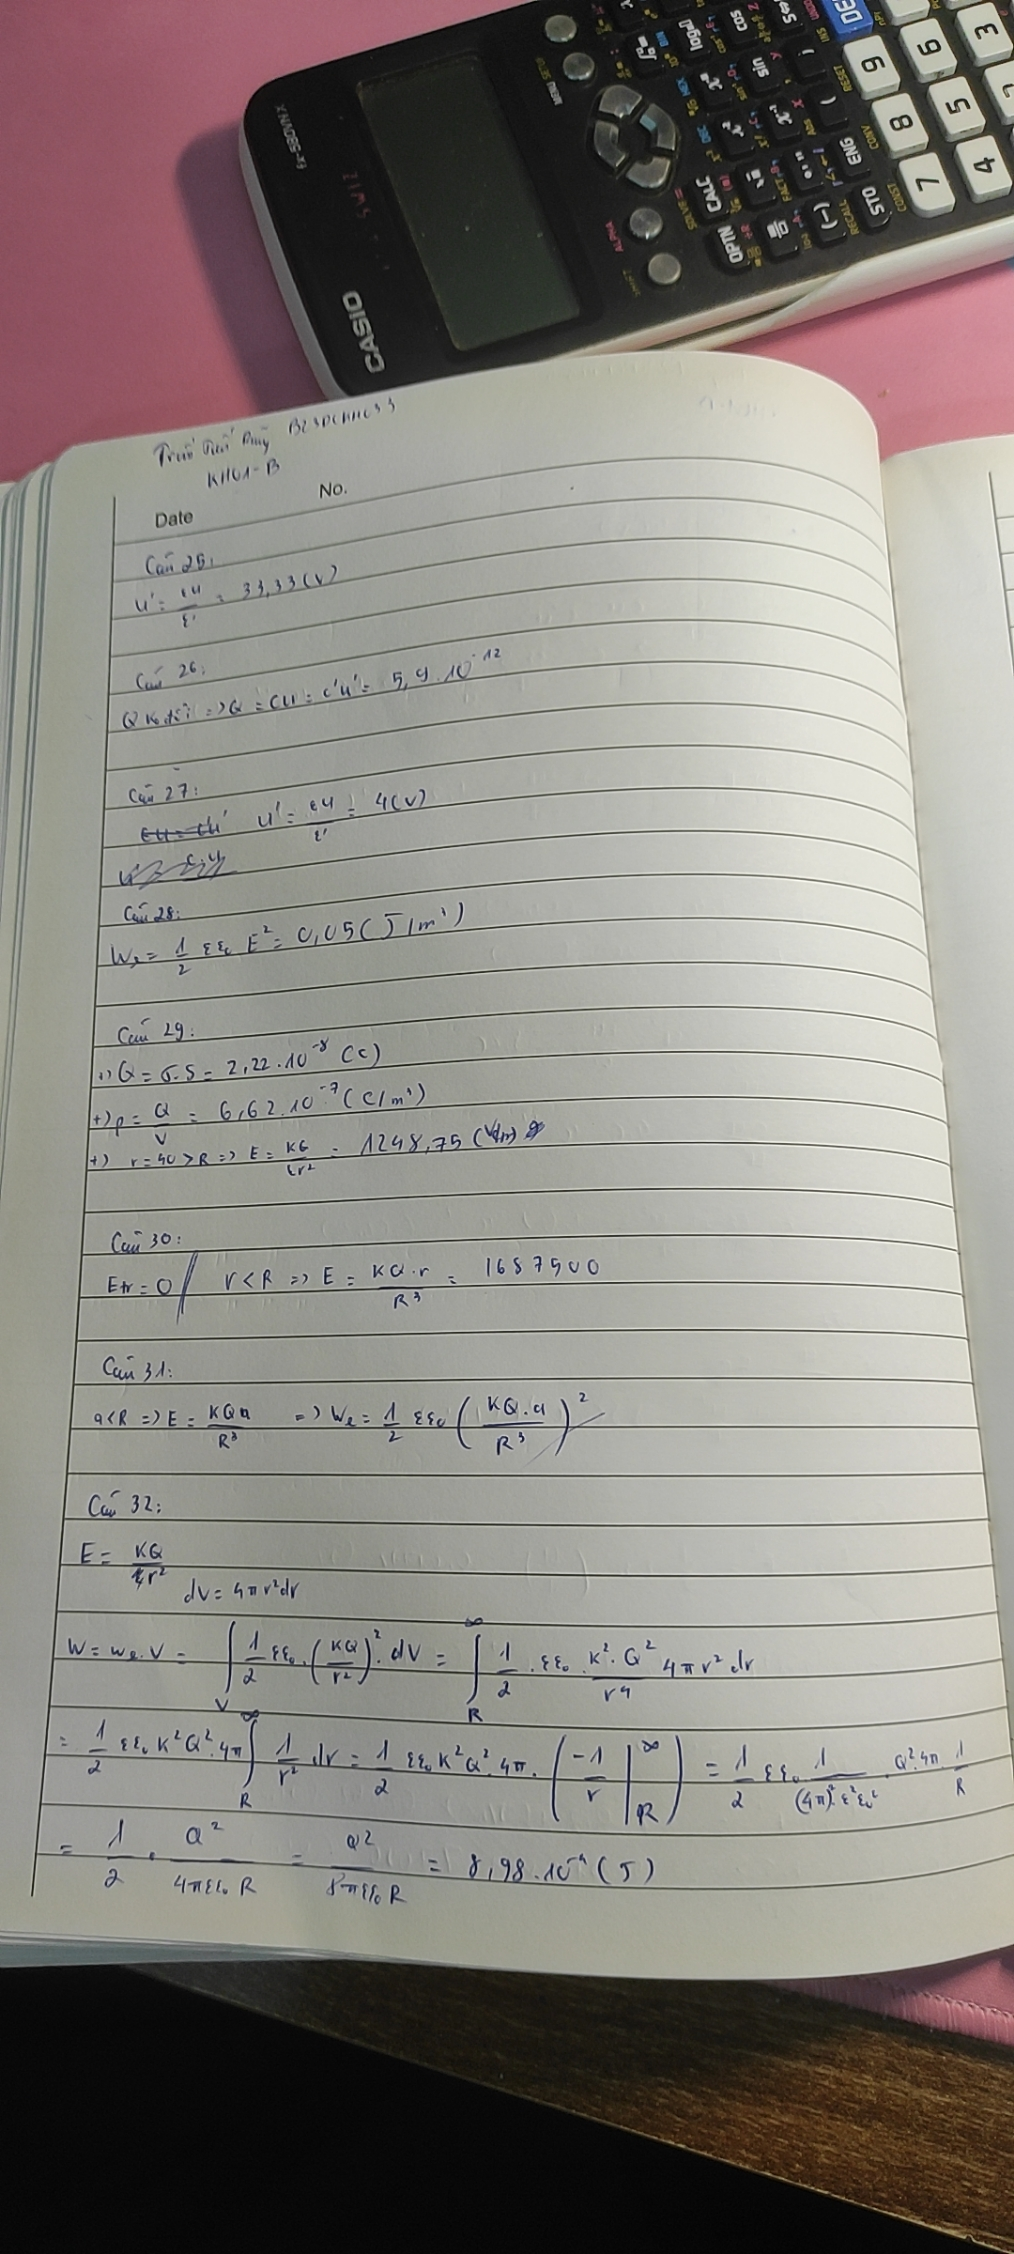 CASIO
fx-580VNX
MENU SETUP
OPTN
CALC
ALPHA
SHIFT
STO
ENG
sin
cos
(-)
7
8
9
4
5
6
3
DEL
B23DCKH033
KH01-B
No.
Date
Câu 25:
U' = εU/ε' = 33,33 (V)
Câu 26:
Q K đổi => Q = CU = C'U' = 5,9.10⁻¹²
Câu 27:
U' = εU/ε' = 4(V)
Câu 28:
We = 1/2 εε₀ E² = 0,05 (J/m³)
Câu 29:
+) Q = σ.S = 2,22.10⁻⁸ (C)
+) ρ = Q/V = 6,62.10⁻⁷ (C/m³)
+) r = 40 > R => E = KQ/εr² = 1248,75 (V/m)
Câu 30:
Etr = 0 // r < R => E = KQ.r/R³ = 1687500
Câu 31:
a<R => E = KQa/R³ => We = 1/2 εε₀ (KQ.a/R³)²
Câu 32:
E = KQ/εr²
dV = 4πr²dr
W = we.V = ∫_V 1/2 εε₀.(KQ/r²)².dV = ∫_R^∞ 1/2 .εε₀.K².Q²/r⁴ 4πr².dr
= 1/2 εε₀K²Q².4π ∫_R^∞ 1/r² dr = 1/2 εε₀K²Q².4π.(-1/r |_R^∞) = 1/2 εε₀ 1/(4π)².ε²ε₀² .Q².4π.1/R
= 1/2 . Q²/4πεε₀R = Q²/8πεε₀R = 8,98.10⁻⁴ (J)